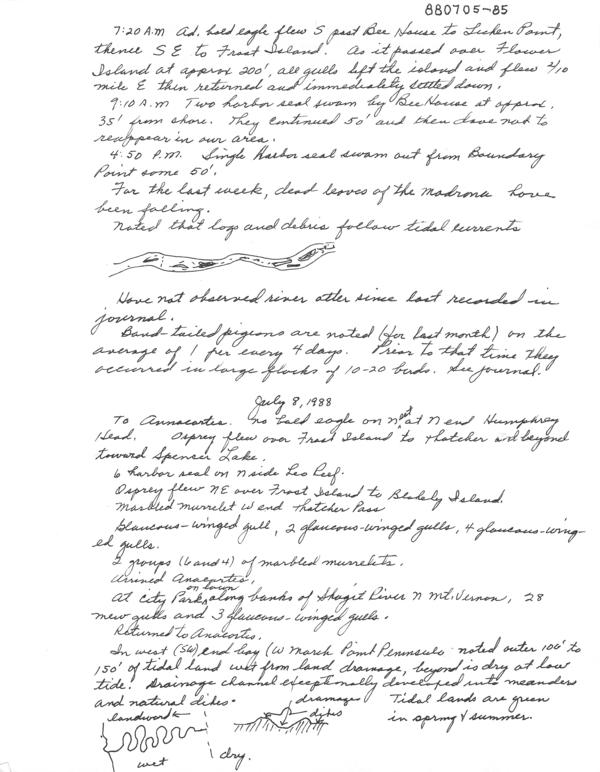 880705-85
7:20 A.M Ad. bald eagle flew S past Bee House to Lichen Point,
thence SE to Frost Island. As it passed over Flower
Island at approx 200', all gulls left the island and flew 2/10
mile E then returned and immediately settled down.
9:10 A.M Two harbor seal swam by Bee House at approx.
35' from shore. They continued 50' and then dove not to
reappear in our area.
4:50 P.M. Single Harbor seal swam out from Boundary
Point some 50'.
For the last week, dead leaves of the Madrona have
been falling.
Noted that logs and debris follow tidal currents
Have not observed river otter since last recorded in
journal.
Band-tailed pigeons are noted (for last month) on the
average of 1 per every 4 days. Prior to that time they
occurred in large flocks of 10-20 birds. See journal.
July 8, 1988
To Annacortes. No bald eagle on nest at N end Humphrey
Head. Osprey flew over Frost Island to Thatcher and beyond
toward Spencer Lake.
6 harbor seal on N side Leo Reef.
Osprey flew NE over Frost Island to Blakely Island.
Marbled murrelet W end Thatcher Pass
Glaucous-winged gull, 2 glaucous-winged gulls, 4 glaucous-wing-
ed gulls.
2 groups (6 and 4) of marbled murrelets.
Arrived Anacortes.
At City Park on lawn along banks of Skagit River N Mt. Vernon, 28
mew gulls and 3 glaucous-winged gulls.
Returned to Anacortes.
In west (SW) end bay (W March Point Pennsula noted outer 100' to
150' of tidal land wet from land drainage, beyond is dry at low
tide. Drainage channel exceptionally developed into meanders
and natural dikes.
drainage
Tidal lands are green
landward
dikes
in spring & summer.
wet
dry.